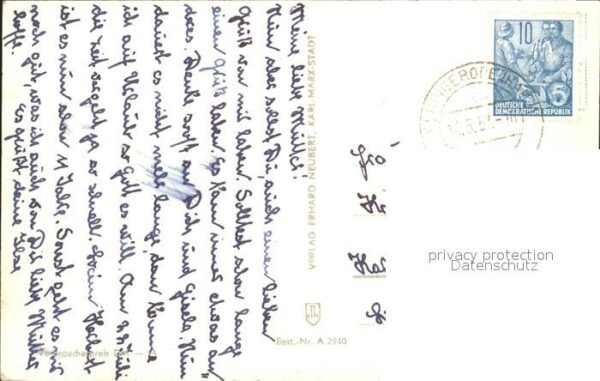 Meine liebe Mutter!
Nun aber sollst Du, auch einen lieben
Gruß von mir haben. Solltest schon lange
einen Gruß haben. Es kam immer etwas an¬
deres. Denke oft an Dich und Gisela. Nun
dauert es nicht mehr lange, dann komme
ich auf Urlaub so Gott es will. Am 22. Juli
die Zeit vergeht ja so schnell.
ist es nun schon 11 Jahre. Sonst geht es mir
noch gut, was ich auch von Dir liebe Mutter
hoffe.
Es grüßt deine Ilse
VERLAG ERHARD NEUBERT, KARL-MARX-STADT
Best.-Nr. A 2940
Verbraucherpreis DM
10
5
DEUTSCHE
DEMOKRATISCHE REPUBLIK
privacy protection
Datenschutz